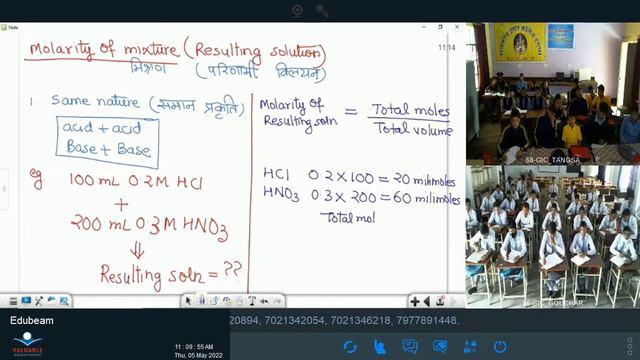 Note
Molarity of mixture (Resulting solution)
मिश्रण (परिणामी विलयन)
11:14
1. Same nature (समान प्रकृति)
acid + acid
Base + Base
eg 100 mL 0.2 M HCl
+
200 mL 0.3 M HNO3
⇓
Resulting soln = ??
Molarity of Resulting soln = Total moles
Total volume
HCl 0.2 × 100 = 20 milimoles
HNO3 0.3 × 200 = 60 milimoles
Total mol
68-GIC_TANGSA
GIC_GOUCHAR
Edubeam
20894, 7021342054, 7021346218, 7977891448.
VALUABLE
11 : 09 : 55 AM
Thu, 05 May 2022